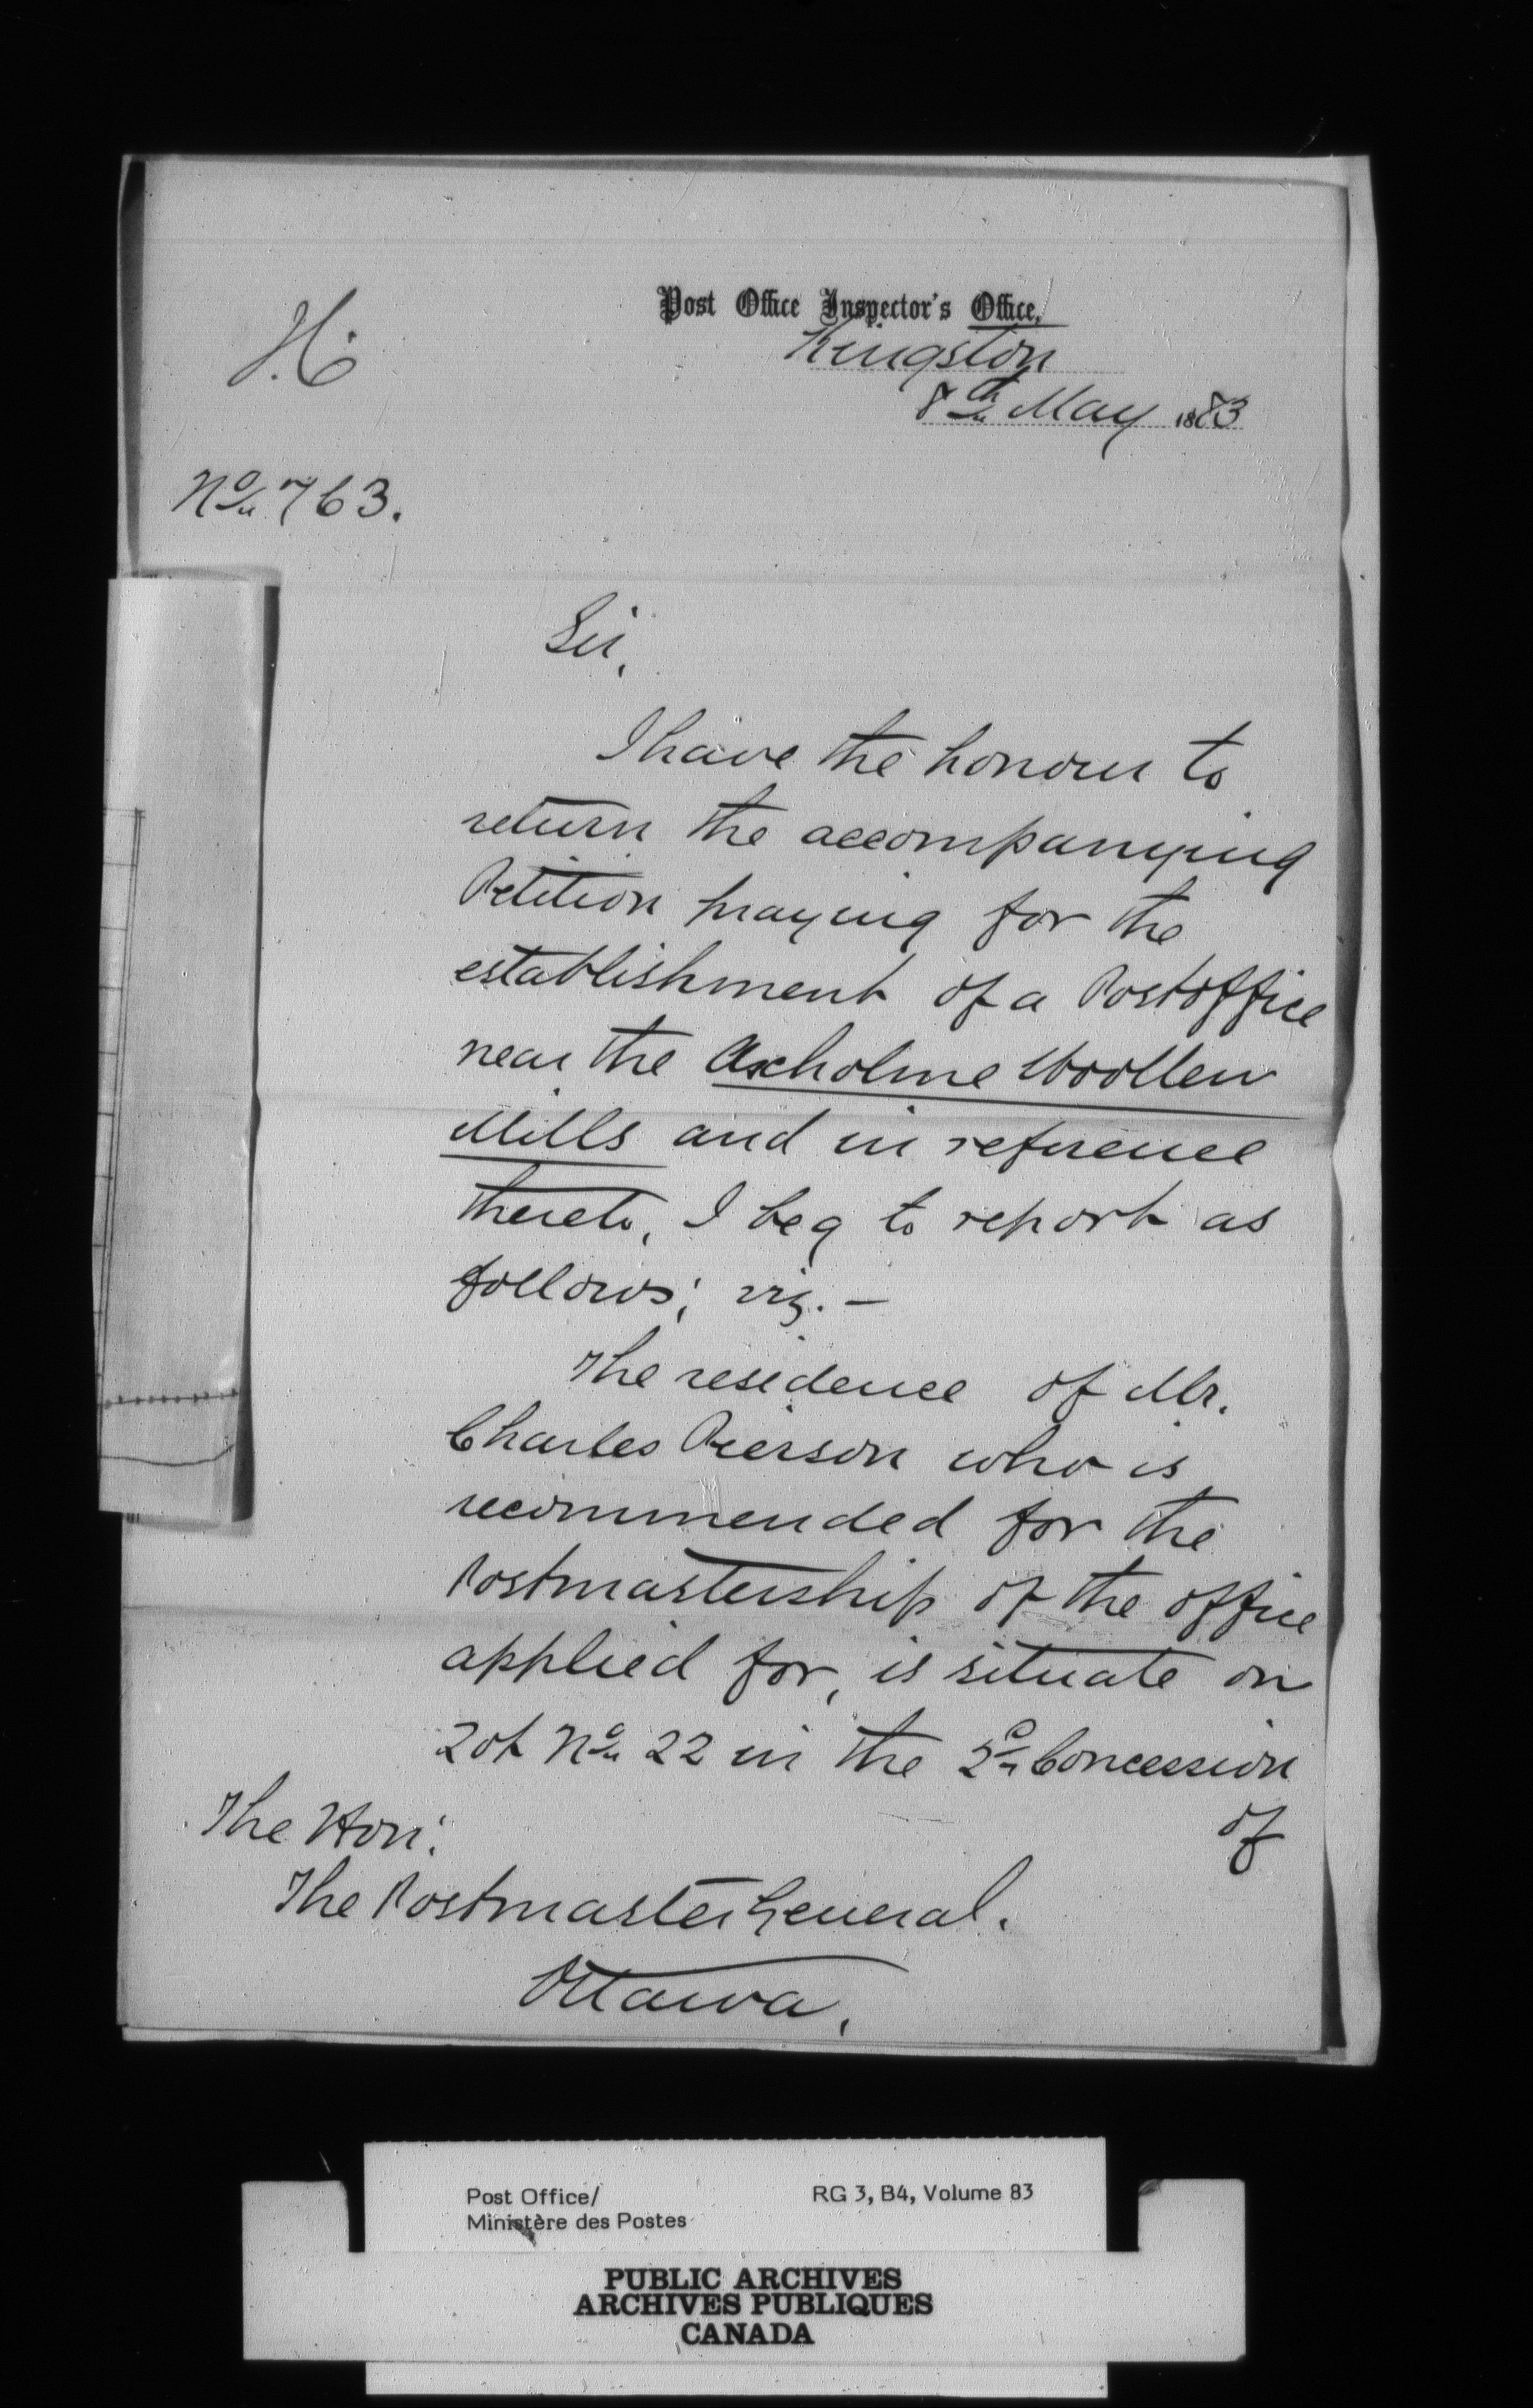 Post Office Inspector's Office,
Kingston
8th May 1883
H.
No 763.
Sir,
I have the honour to
return the accompanying
Petition praying for the
establishment of a Postoffice
near the Axholme Woollen
Mills and in reference
thereto, I beg to report as
follows; viz. —
The residence of Mr.
Charles Pierson who is
recommended for the
Postmastership of the office
applied for, is situate on
Lot No 22 in the Concession
of
The Hon:
The Postmaster General.
Ottawa,
Post Office/
Ministère des Postes
RG 3, B4, Volume 83
PUBLIC ARCHIVES
ARCHIVES PUBLIQUES
CANADA